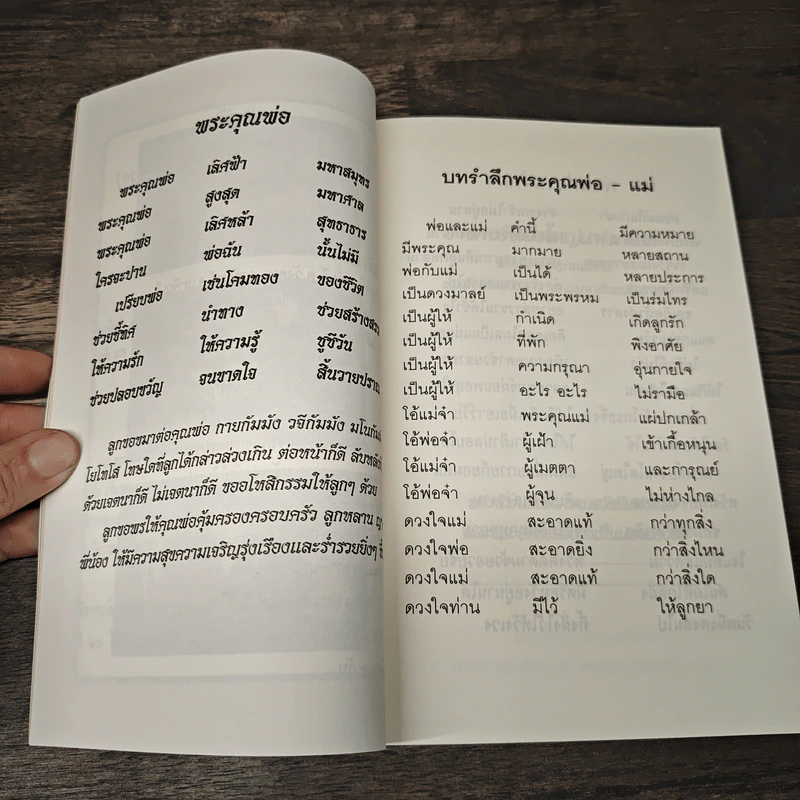 พระคุณพ่อ
พระคุณพ่อ เลิศฟ้า มหาสมุทร
พระคุณพ่อ สูงสุด มหาศาล
พระคุณพ่อ เลิศหล้า สุทธาธาร
ใครจะปาน พ่อฉัน นั้นไม่มี
เปรียบพ่อ เช่นโคมทอง ของชีวิต
ช่วยชี้ทิศ นำทาง ช่วยสร้างสรร
ให้ความรัก ให้ความรู้ ชูชีวัน
ช่วยปลอบขวัญ จนขาดใจ สิ้นวายปราณ
ลูกขอขมาต่อคุณพ่อ กายกัมมัง วจีกัมมัง มโนกัมมัง
โยโทโส โทษใดที่ลูกได้กล่าวล่วงเกิน ต่อหน้าก็ดี ลับหลัง
ด้วยเจตนาก็ดี ไม่เจตนาก็ดี ขออโหสิกรรมให้ลูกๆ ด้วย
ลูกขอพรให้คุณพ่อคุ้มครองครอบครัว ลูกหลาน
พี่น้อง ให้มีความสุขความเจริญรุ่งเรืองและร่ำรวยยิ่งๆ
บทรำลึกพระคุณพ่อ - แม่
พ่อและแม่ คำนี้ มีความหมาย
มีพระคุณ มากมาย หลายสถาน
พ่อกับแม่ เป็นได้ หลายประการ
เป็นดวงมาลย์ เป็นพระพรหม เป็นร่มไทร
เป็นผู้ให้ กำเนิด เกิดลูกรัก
เป็นผู้ให้ ที่พัก พิงอาศัย
เป็นผู้ให้ ความกรุณา อุ่นกายใจ
เป็นผู้ให้ อะไร อะไร ไม่รามือ
โอ้แม่จ๋า พระคุณแม่ แผ่ปกเกล้า
โอ้พ่อจ๋า ผู้เฝ้า เข้าเกื้อหนุน
โอ้แม่จ๋า ผู้เมตตา และการุณย์
โอ้พ่อจ๋า ผู้จุน ไม่ห่างไกล
ดวงใจแม่ สะอาดแท้ กว่าทุกสิ่ง
ดวงใจพ่อ สะอาดยิ่ง กว่าสิ่งไหน
ดวงใจแม่ สะอาดแท้ กว่าสิ่งใด
ดวงใจท่าน มีไว้ ให้ลูกยา